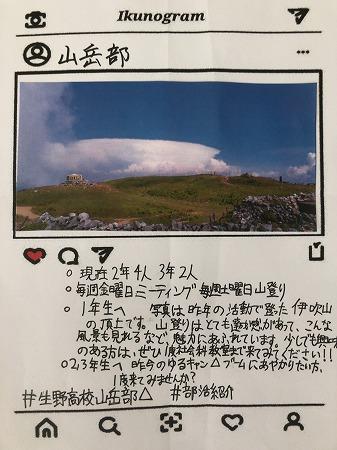 Ikunogram
山岳部
○ 現在 2年4人 3年2人
○ 毎週金曜日ミーティング 毎週土曜日山登り
○ 1年生へ 写真は昨年の活動で登った伊吹山
の頂上です。山登りはとても達成感があって、こんな
風景も見れるなど、魅力にあふれています。少しでも興味
のある方は、ぜひ1度社会科教室まで来てみてください!!
○ 2,3年生へ 昨今のゆるキャン△ブームにあやかりたい方、
1度来てみませんか?
#生野高校山岳部△ #部活紹介